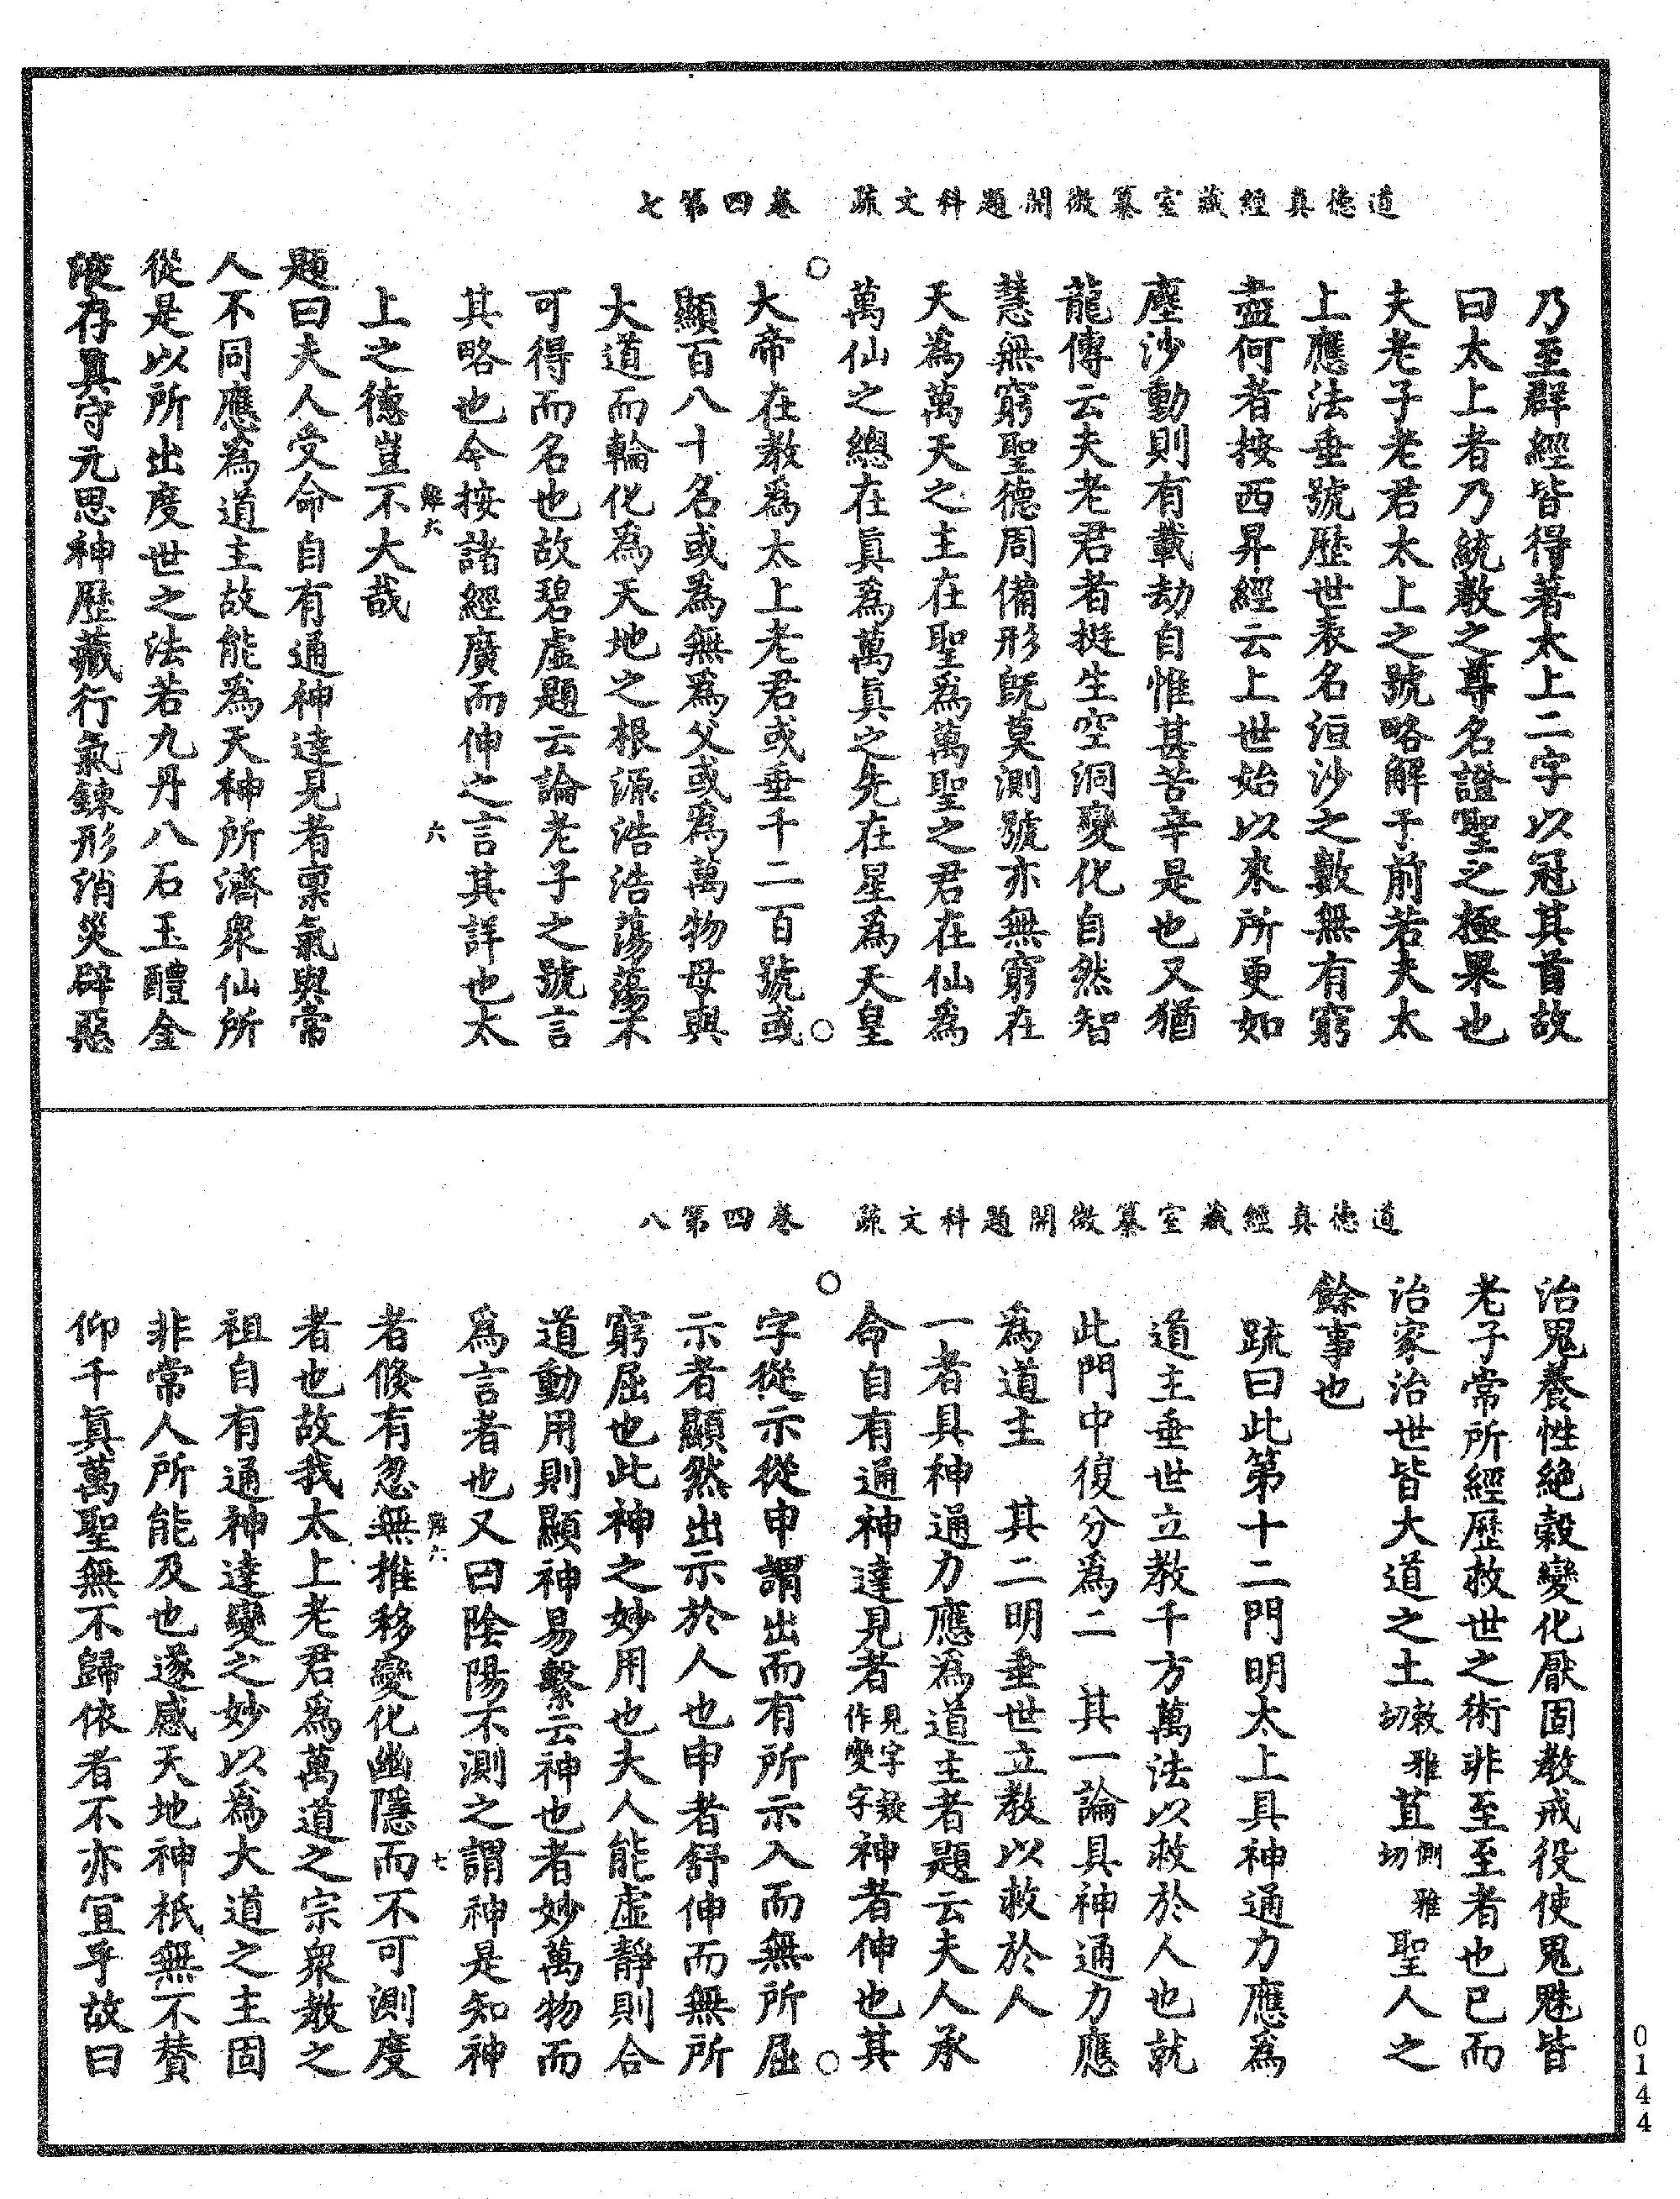 道德真經藏室纂微開題科文疏　卷四第七
乃至群經皆得著太上二字以冠其首故
曰太上者乃統教之尊名證聖之極果也
夫老子老君太上之號略解于前若夫太
上應法垂號歷世表名洹沙之數無有窮
盡何者按西昇經云上世始以來所更如
塵沙動則有載劫自惟甚苦辛是也又猶
龍傳云夫老君者挺生空洞變化自然智
慧無窮聖德周備形旣莫測號亦無窮在
天為萬天之主在聖為萬聖之君在仙為
萬仙之總在眞為萬眞之先在星為天皇
大帝在教為太上老君或垂千二百號或
顯百八十名或為無為父或為萬物母與
大道而輪化為天地之根源浩浩蕩蕩不
可得而名也故碧虛題云論老子之號言
其略也今按諸經廣而伸之言其詳也太
上之德豈不大哉
六
題曰夫人受命自有通神達見者稟氣與常
人不同應為道主故能為天神所濟衆仙所
從是以所出度世之法若九丹八石玉醴金
液存眞守元思神歷藏行氣鍊形消災辟惡
道德真經藏室纂微開題科文疏　卷四第八
治鬼養性絕穀變化厭固教戒役使鬼魅皆
老子常所經歷救世之術非至至者也已而
治家治世皆大道之土敕雅切苴側雅切聖人之
餘事也
疏曰此第十二門明太上具神通力應為
道主垂世立教千方萬法以救於人也就
此門中復分為二　其一論具神通力應
為道主　其二明垂世立教以救於人
一者具神通力應為道主者題云夫人承
命自有通神達見者見字疑作變字神者伸也其
字從示從申謂出而有所示入而無所屈
示者顯然出示於人也申者舒伸而無所
窮屈也此神之妙用也夫人能虛靜則合
道動用則顯神易繫云神也者妙萬物而
為言者也又曰陰陽不測之謂神是知神
七
者倏有忽無推移變化幽隱而不可測度
者也故我太上老君為萬道之宗衆教之
祖自有通神達變之妙以為大道之主固
非常人所能及也遂感天地神祇無不贊
仰千眞萬聖無不歸依者不亦宜乎故曰
0144